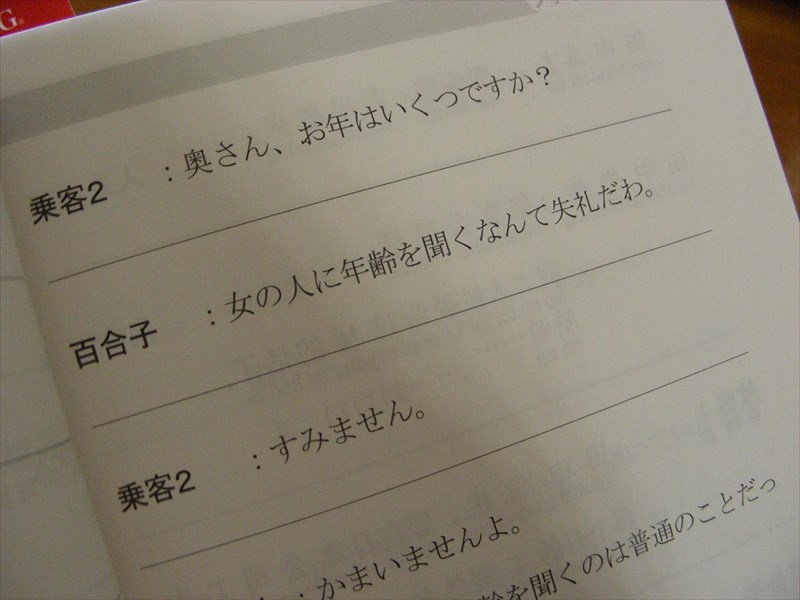 G®
乗客2 ：奥さん、お年はいくつですか？
百合子 ：女の人に年齢を聞くなんて失礼だわ。
乗客2 ：すみません。
：かまいませんよ。
齢を聞くのは普通のことだっ